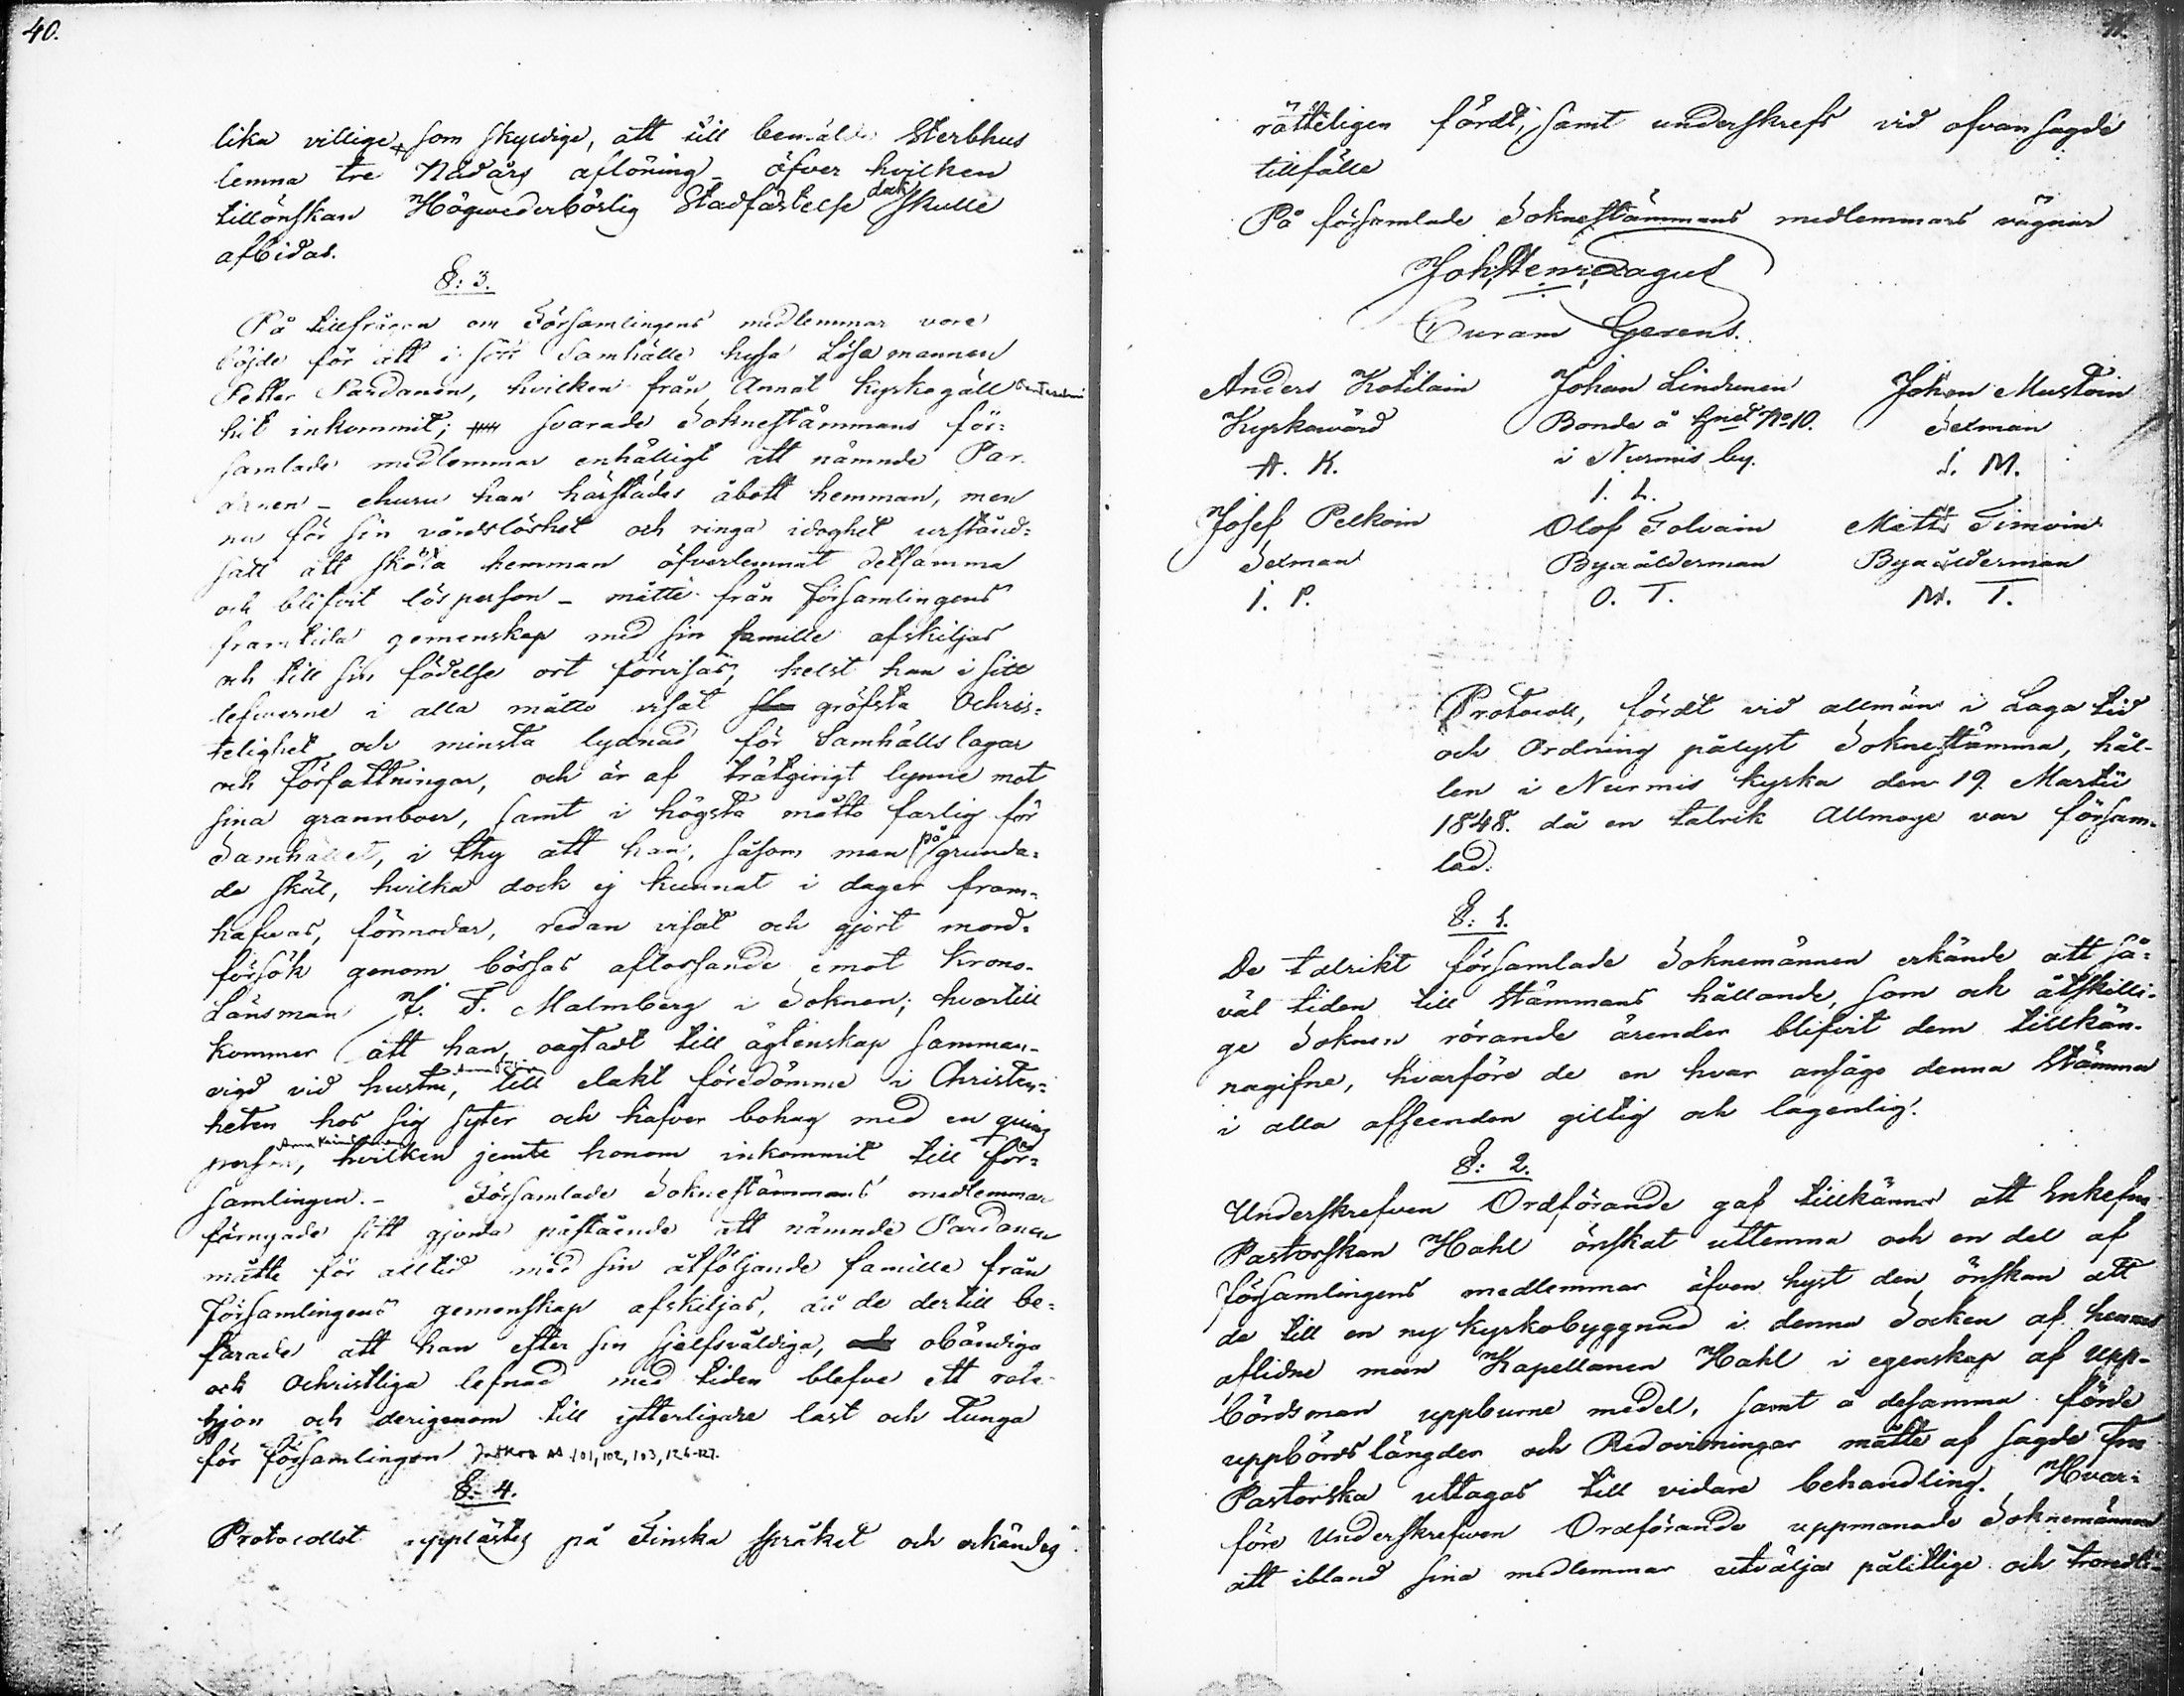 40.
lika villige, som skyldige, att till bemälde Sterbhus
lemna tre Nådårs aflöning – öfver hvilken
tillönskan Högwederbörlig Stadfästelse dock skulle
afbidas.
§: 3.
På tillfrågan om Församlingens medlemmar vore
böjde för att i sitt Samhälle hysa Lösa mannen
Petter Pardanen, hvilken från Annat Kyrkogäll
hit inkommit; svarade Sokneståmmans för=
samlade medlemmar enhälligt att nämnde Par
danen – ehuru han härstädes åbott hemman, men
nu för sin vårdslöshet och ringa idoghet urstånd=
satt att sköta hemman öfverlemnat detsamma
och blifvit lös person – måtte från Församlingens
framtida gemenskap med sin famille afskiljas
och till sin födelse ort förvisas, helst han i sitt
lefwerne i alla måtto visat gröfsta Ochris=
telighet och minsta lydnad för Samhälls lagar
och författningar, och är af trätgirigt lynne mot
sina grannboer, samt i högsta måtto farlig för
Samhället, i thy att han, såsom man på grunda=
de skäl, hvilka dock ej kunnat i dagen fram=
hafwas, förmodar, redan visat och gjort mord=
försök genom bössas aflossande emot Krono=
Länsman J. F. Malmberg i Soknen; hvartill
kommer att han oagtadt till ägtenskap samman=
vigd vid hustru, till elakt föredömme i Christen=
heten hos sig syter och hafver bohag med en quins
person, hvilken jemte honom inkommit till För=
samlingen. – Församlade Sokneståmmans medlemmar
förnyade sitt gjorda påstående att nämnde Pardanen
måtte för alltid med sin åtföljande famille från
Församlingens gemenskap afskiljas, då de dertill be=
farade att han efter sin sjelfsväldiga, obändiga
och Ochristliga lefnad med tiden blefve ett rote
hjon och derigenom till ytterligare last och tunga
för församlingen 101, 102, 103, 126-127.
§: 4.
Protocollet upplästes på Finska språket och erkändes
41.
rätteligen fördt, samt underskrefs vid ofvansagde
tillfälle
På församlade Sokneståmmans medlemmars vägnar
Joh. Henr. Lagus
Curam Gerens.
Anders Kotilain Johan Lindrenen Johan Mustoin
Kyrkowärd Bonde å No 10. Sexman
A. K. i Nurmis by. J. M.
J. L.
Josef Pelkoin Olof Tolvain Matts Timoin
Sexman Byaålderman Byaålderman
J. P. O. T. M. T.
Protocoll, fördt vid allmän i Laga tid
och Ordning pålyst Sokneståmma, hål-
len i Nurmis Kyrka den 19. Martii
1848. då en talrik Allmoge var försam=
lad.
§: 1.
De talrikt församlade Soknemännen erkände att så=
väl tiden till Stämmans hållande, som och åtskilli=
ge Soknen rörande ärender blifvit dem tillkän=
nagifne, hvarföre de en hvar ansågo denna Stämma
i alla afseenden giltig och lagenlig.
§: 2.
Underskrefven Ordförande gaf tillkänna att Enkefru
Pastorskan Hahl önskat uttemna och en del af
församlingens medlemmar äfven hyst den önskan att
de till en ny kyrkobyggnad i denna Socken af hennes
aflidne man Kapellanen Hahl i egenskap af Upp=
bördsman uppburne medel, samt å desamma förde
uppbörds längder och Redovisningar måtte af sagde Fru
Pastorska uttagas till vidare behandling. Hvar=
före Underskrefven Ordförande uppmanade Soknemännen
att ibland sina medlemmar utvälja pålitlige och